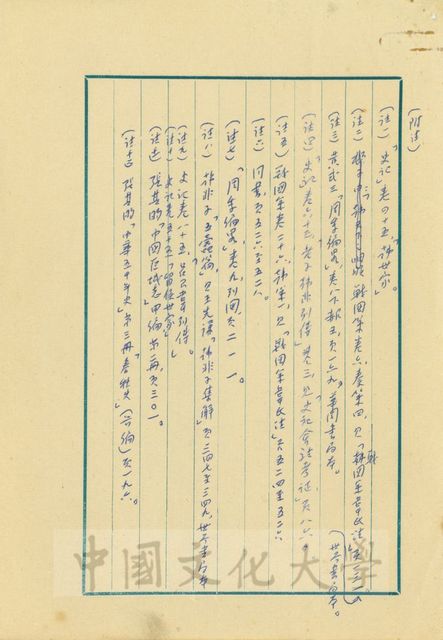 (附注)
(註一)「史記」卷四十五,「韓世家」。
(註二) 戰國策卷六,秦策四,見「戰國策 (世界書局本)。
(註三) 黃式三「周季編畧」,卷八下 頁一六九,華聞書局本。
(註四)「史記」卷六十三,老子韓非列傳第三,見史記會注考證,頁八六〇
(註五) 戰國策卷二十六,韓策一,見「戰國策 五二四至五二六
(註六) 同書,頁五二六至五二八。
(註七)「周季編畧」,卷九,列國,頁二一一。
(註八)「韓非子」「五蠹篇」,見王先謙「韓非子集解」,頁三四七至三四九,世界書局本
(註九) 史記卷八十五,呂不韋列傳。
(註十) 史記卷五十五,「留侯世家」
(註十一) 張其昀「中國區域志」甲編第二冊,頁三〇一。
(註十二) 張其昀「中華五千年史」第三冊「春秋史」(前編) 頁一九六。
中國文化大學